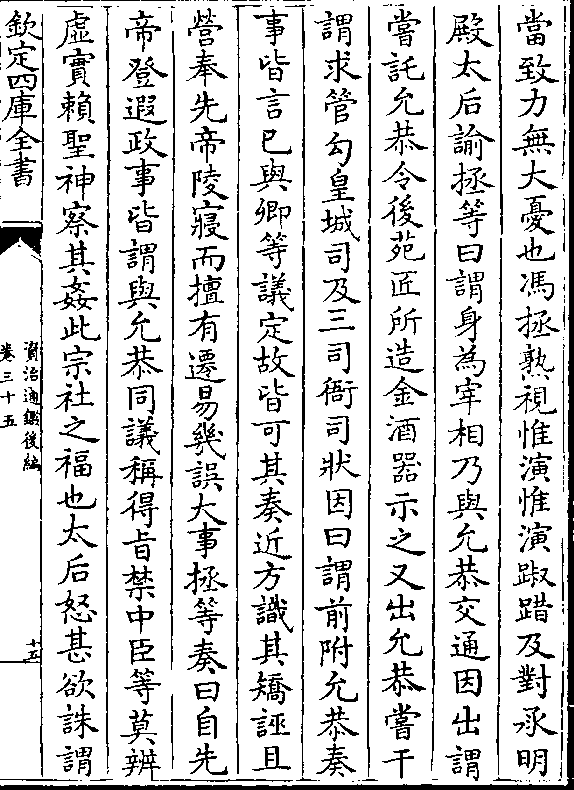 當致力無大憂也馮拯熟視惟演惟演踧踖及對承明
殿太后諭拯等曰謂身為宰相乃與允恭交通因出謂
嘗託允恭令後苑匠所造金酒器示之又出允恭嘗干
謂求管勾皇城司及三司衙司狀因曰謂前附允恭奏
事皆言已與卿等議定故皆可其奏近方識其矯誣且
營奉先帝陵寢而擅有遷易幾誤大事拯等奏曰自先
帝登遐政事皆謂與允恭同議稱得旨禁中臣等莫辨
虛實賴聖神察其姦此宗社之福也太后怒甚欲誅謂
欽定四庫全書
資治通鑑後編
卷三十五
十五